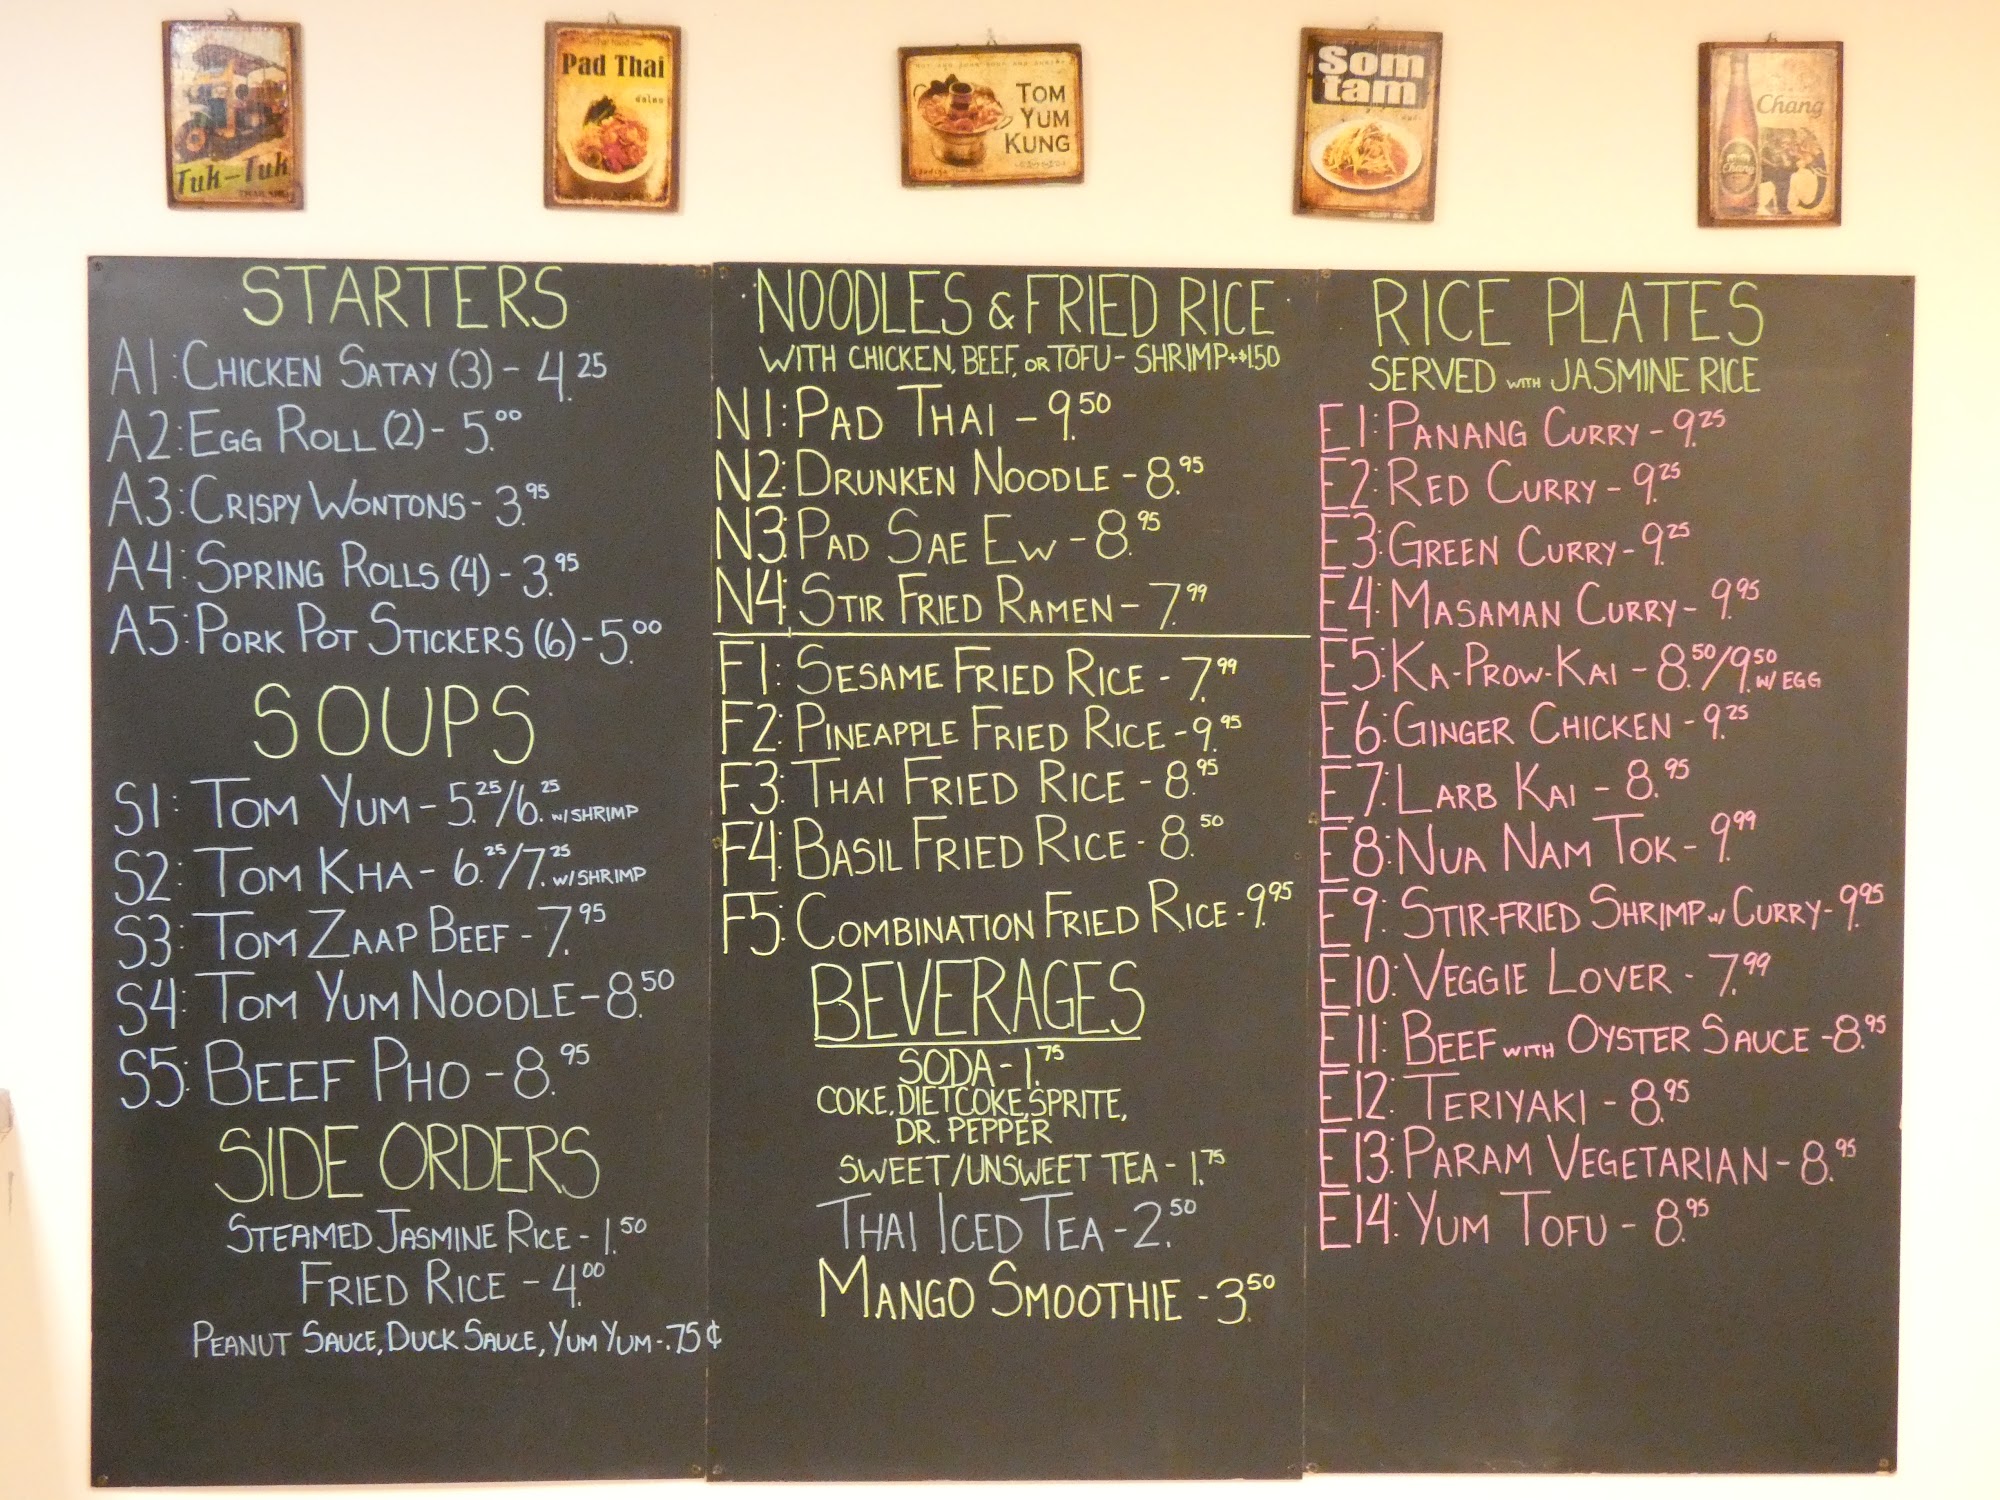 Tuk-Tuk
Pad Thai
TOM
YUM
KUNG
Som
tam
Chang
Chang
STARTERS
A1: CHICKEN SATAY (3) - 4.25
A2: EGG ROLL (2) - 5.00
A3: CRISPY WONTONS - 3.95
A4: SPRING ROLLS (4) - 3.95
A5: PORK POT STICKERS (6) - 5.00
SOUPS
S1: TOM YUM - 5.25/6.25 W/SHRIMP
S2: TOM KHA - 6.25/7.25 W/SHRIMP
S3: TOM ZAAP BEEF - 7.95
S4: TOM YUM NOODLE - 8.50
S5: BEEF PHO - 8.95
SIDE ORDERS
STEAMED JASMINE RICE - 1.50
FRIED RICE - 4.00
PEANUT SAUCE, DUCK SAUCE, YUM YUM - .75¢
NOODLES & FRIED RICE
WITH CHICKEN, BEEF, OR TOFU - SHRIMP + $1.50
N1: PAD THAI - 9.50
N2: DRUNKEN NOODLE - 8.95
N3: PAD SAE EW - 8.95
N4: STIR FRIED RAMEN - 7.99
F1: SESAME FRIED RICE - 7.99
F2: PINEAPPLE FRIED RICE - 9.95
F3: THAI FRIED RICE - 8.95
F4: BASIL FRIED RICE - 8.50
F5: COMBINATION FRIED RICE - 9.95
BEVERAGES
SODA - 1.75
COKE, DIET COKE, SPRITE,
DR. PEPPER
SWEET/UNSWEET TEA - 1.75
THAI ICED TEA - 2.50
MANGO SMOOTHIE - 3.50
RICE PLATES
SERVED WITH JASMINE RICE
E1: PANANG CURRY - 9.25
E2: RED CURRY - 9.25
E3: GREEN CURRY - 9.25
E4: MASAMAN CURRY - 9.95
E5: KA-PROW-KAI - 8.50/9.50 W/ EGG
E6: GINGER CHICKEN - 9.25
E7: LARB KAI - 8.95
E8: NUA NAM TOK - 9.99
E9: STIR-FRIED SHRIMP W/ CURRY - 9.95
E10: VEGGIE LOVER - 7.99
E11: BEEF WITH OYSTER SAUCE - 8.95
E12: TERIYAKI - 8.95
E13: PARAM VEGETARIAN - 8.95
E14: YUM TOFU - 8.95